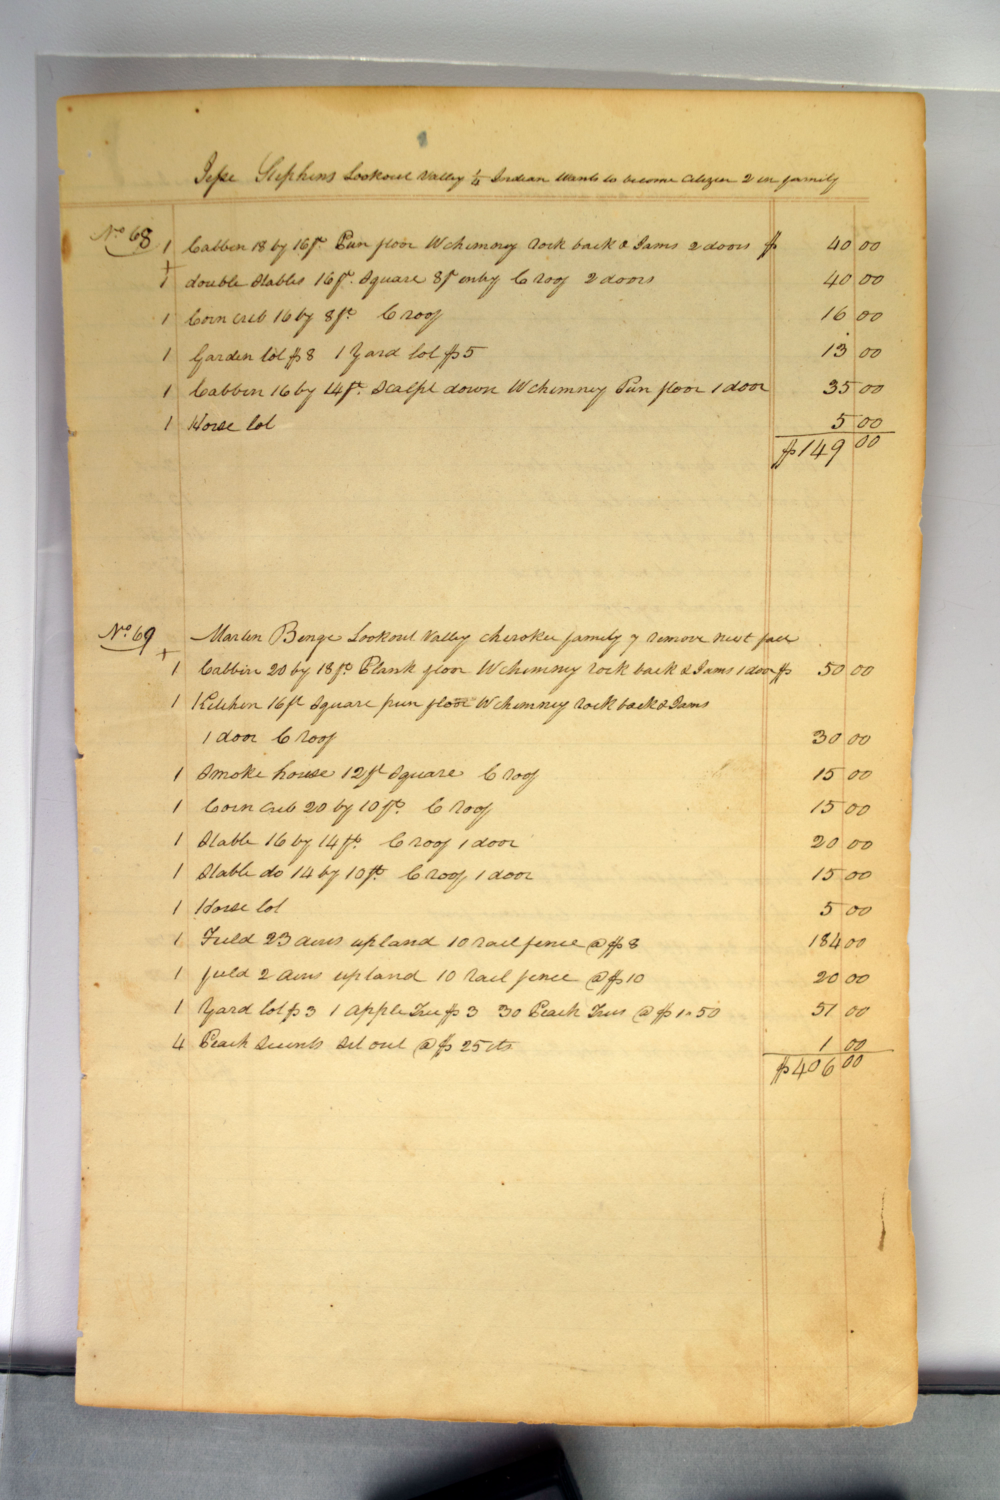 Jesse Stephens Lookout Valley 1/4 Indian Wants to become Citizen 2 in family
No. 68
1 Cabbin 18 by 16ft. Pun floor W chimney rock back & Jams 2 doors $ 40 00
+
1 double Stables 16ft. Square 8ft entry C roof 2 doors 40 00
1 Corn crib 16 by 8ft. C roof 16 00
1 Garden lot $8 1 Yard lot $5 13 00
1 Cabbin 16 by 14ft. Scalpt down W chimney Pun floor 1 door 35 00
1 Horse lot 5 00
$149 00
No. 69 Martin Benge Lookout Valley cherokee family 7 remove next fall
+
1 Cabbin 20 by 18ft. Plank floor W chimney rock back & Jams 1 door $ 50 00
1 Kitchen 16ft Square pun floor W chimney rock back & Jams
1 door C roof 30 00
1 Smoke house 12ft Square C roof 15 00
1 Corn crib 20 by 10ft. C roof 15 00
1 Stable 16 by 14ft. C roof 1 door 20 00
1 Stable do 14 by 10ft. C roof 1 door 15 00
1 Horse lot 5 00
1 Field 23 acres upland 10 rail fence @ $8 184 00
1 field 2 acres upland 10 rail fence @ $10 20 00
1 Yard lot $3 1 Apple Tree $3 30 Peach Trees @ $1.50 51 00
4 Peach Set out @ $ 25cts 1 00
$406 00